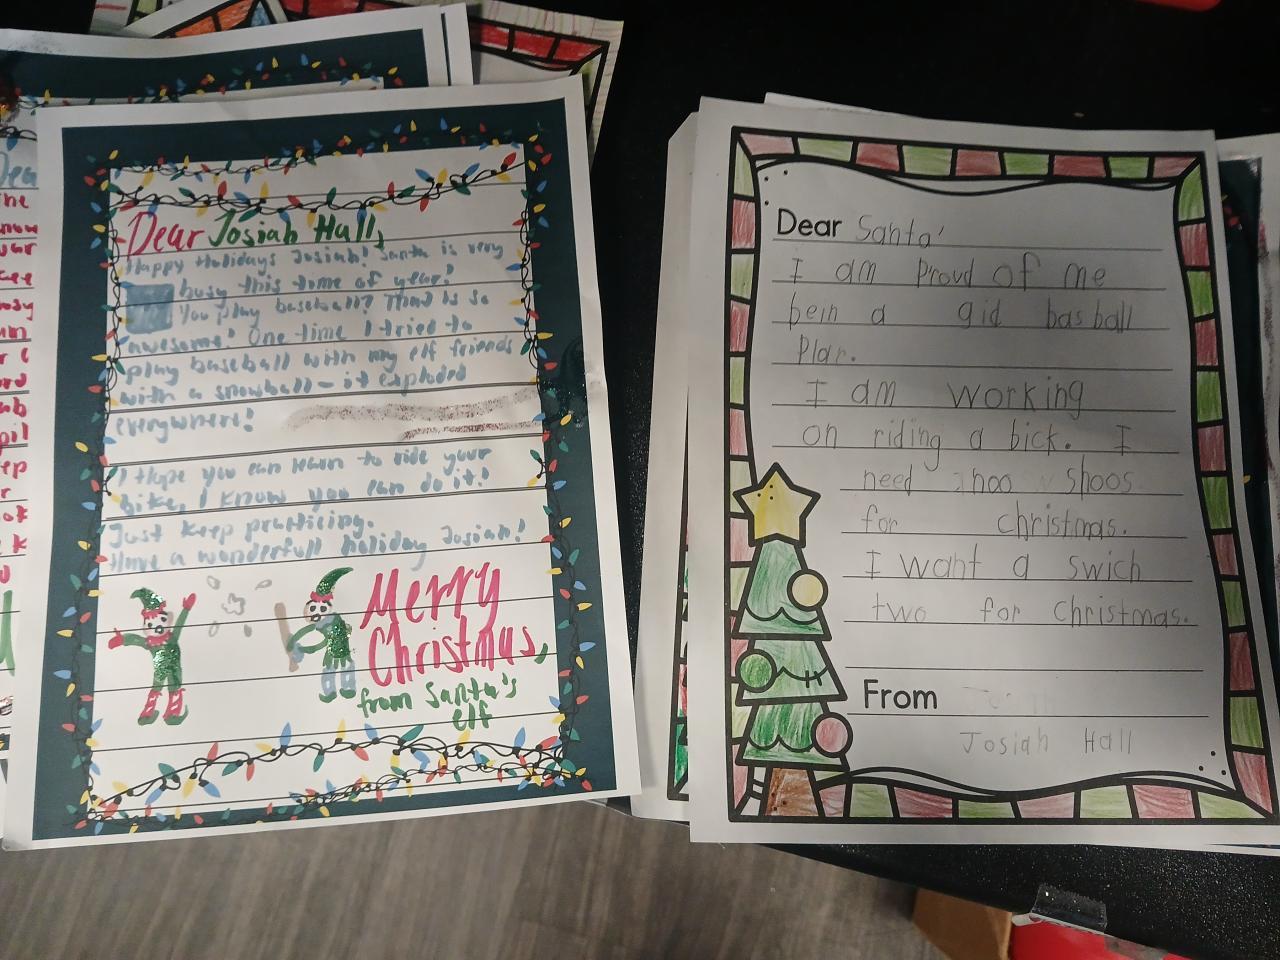 Dear Josiah Hall,
Happy Holidays Josiah! Santa is very
busy this time of year!
You play baseball? That is so
awesome! One time I tried to
play baseball with my elf friends
with a snowball - it exploded
everywhere!
I Hope you can learn to ride your
bike, I know you can do it!
Just keep practicing.
Have a wonderfull holiday Josiah!
Merry
Christmas,
from Santa's
elf
Dear Santa'
I am Proud of me
bein a gid bas ball
Plar.
I am working
on riding a bick. I
need noo shoos
for christmas.
I want a swich
two for christmas.
From
Josiah Hall